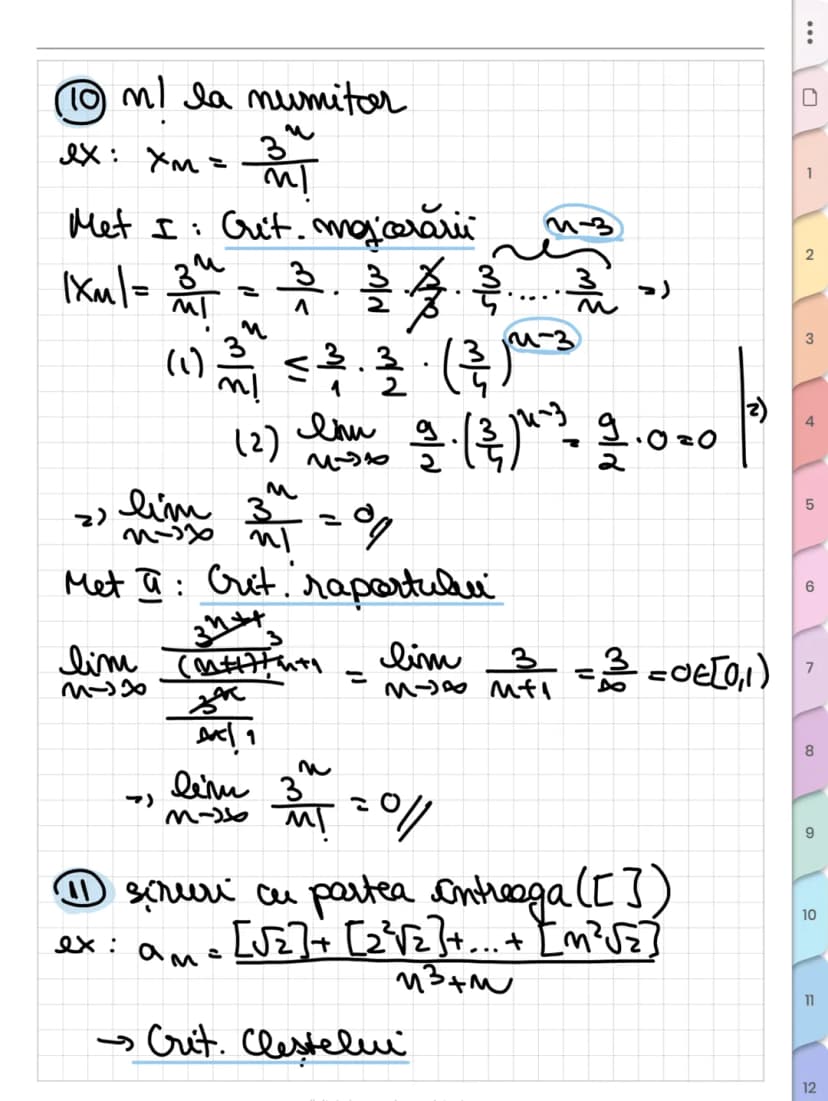 10 n! la numitor
ex: xₙ = 3ⁿ/n!
Met I: Crit. majorării
n-3
|xₙ| = 3ⁿ/n! = 3/1 · 3/2 · 3/3 · 3/4 · .... · 3/n =>
(1) 3ⁿ/n! ≤ 3/1 · 3/2 · (3/4)ⁿ⁻³
(2) lim n->∞ 9/2 · (3/4)ⁿ⁻³ = 9/2 · 0 = 0 | =>
=> lim n->∞ 3ⁿ/n! = 0//
Met II: Crit. raportului
lim n->∞ (3ⁿ⁺¹ 3/(n+1)! n+1)/(3ⁿ/n! 1) = lim n->∞ 3/(n+1) = 3/∞ = 0∈[0,1)
=> lim n->∞ 3ⁿ/n! = 0//
11 șiruri cu partea întreaga ([ ])
ex: aₙ = ([√2] + [2²√2] + ... + [n²√2])/(n³+n)
-> Crit. Cleștelui
1
2
3
4
5
6
7
8
9
10
11
12